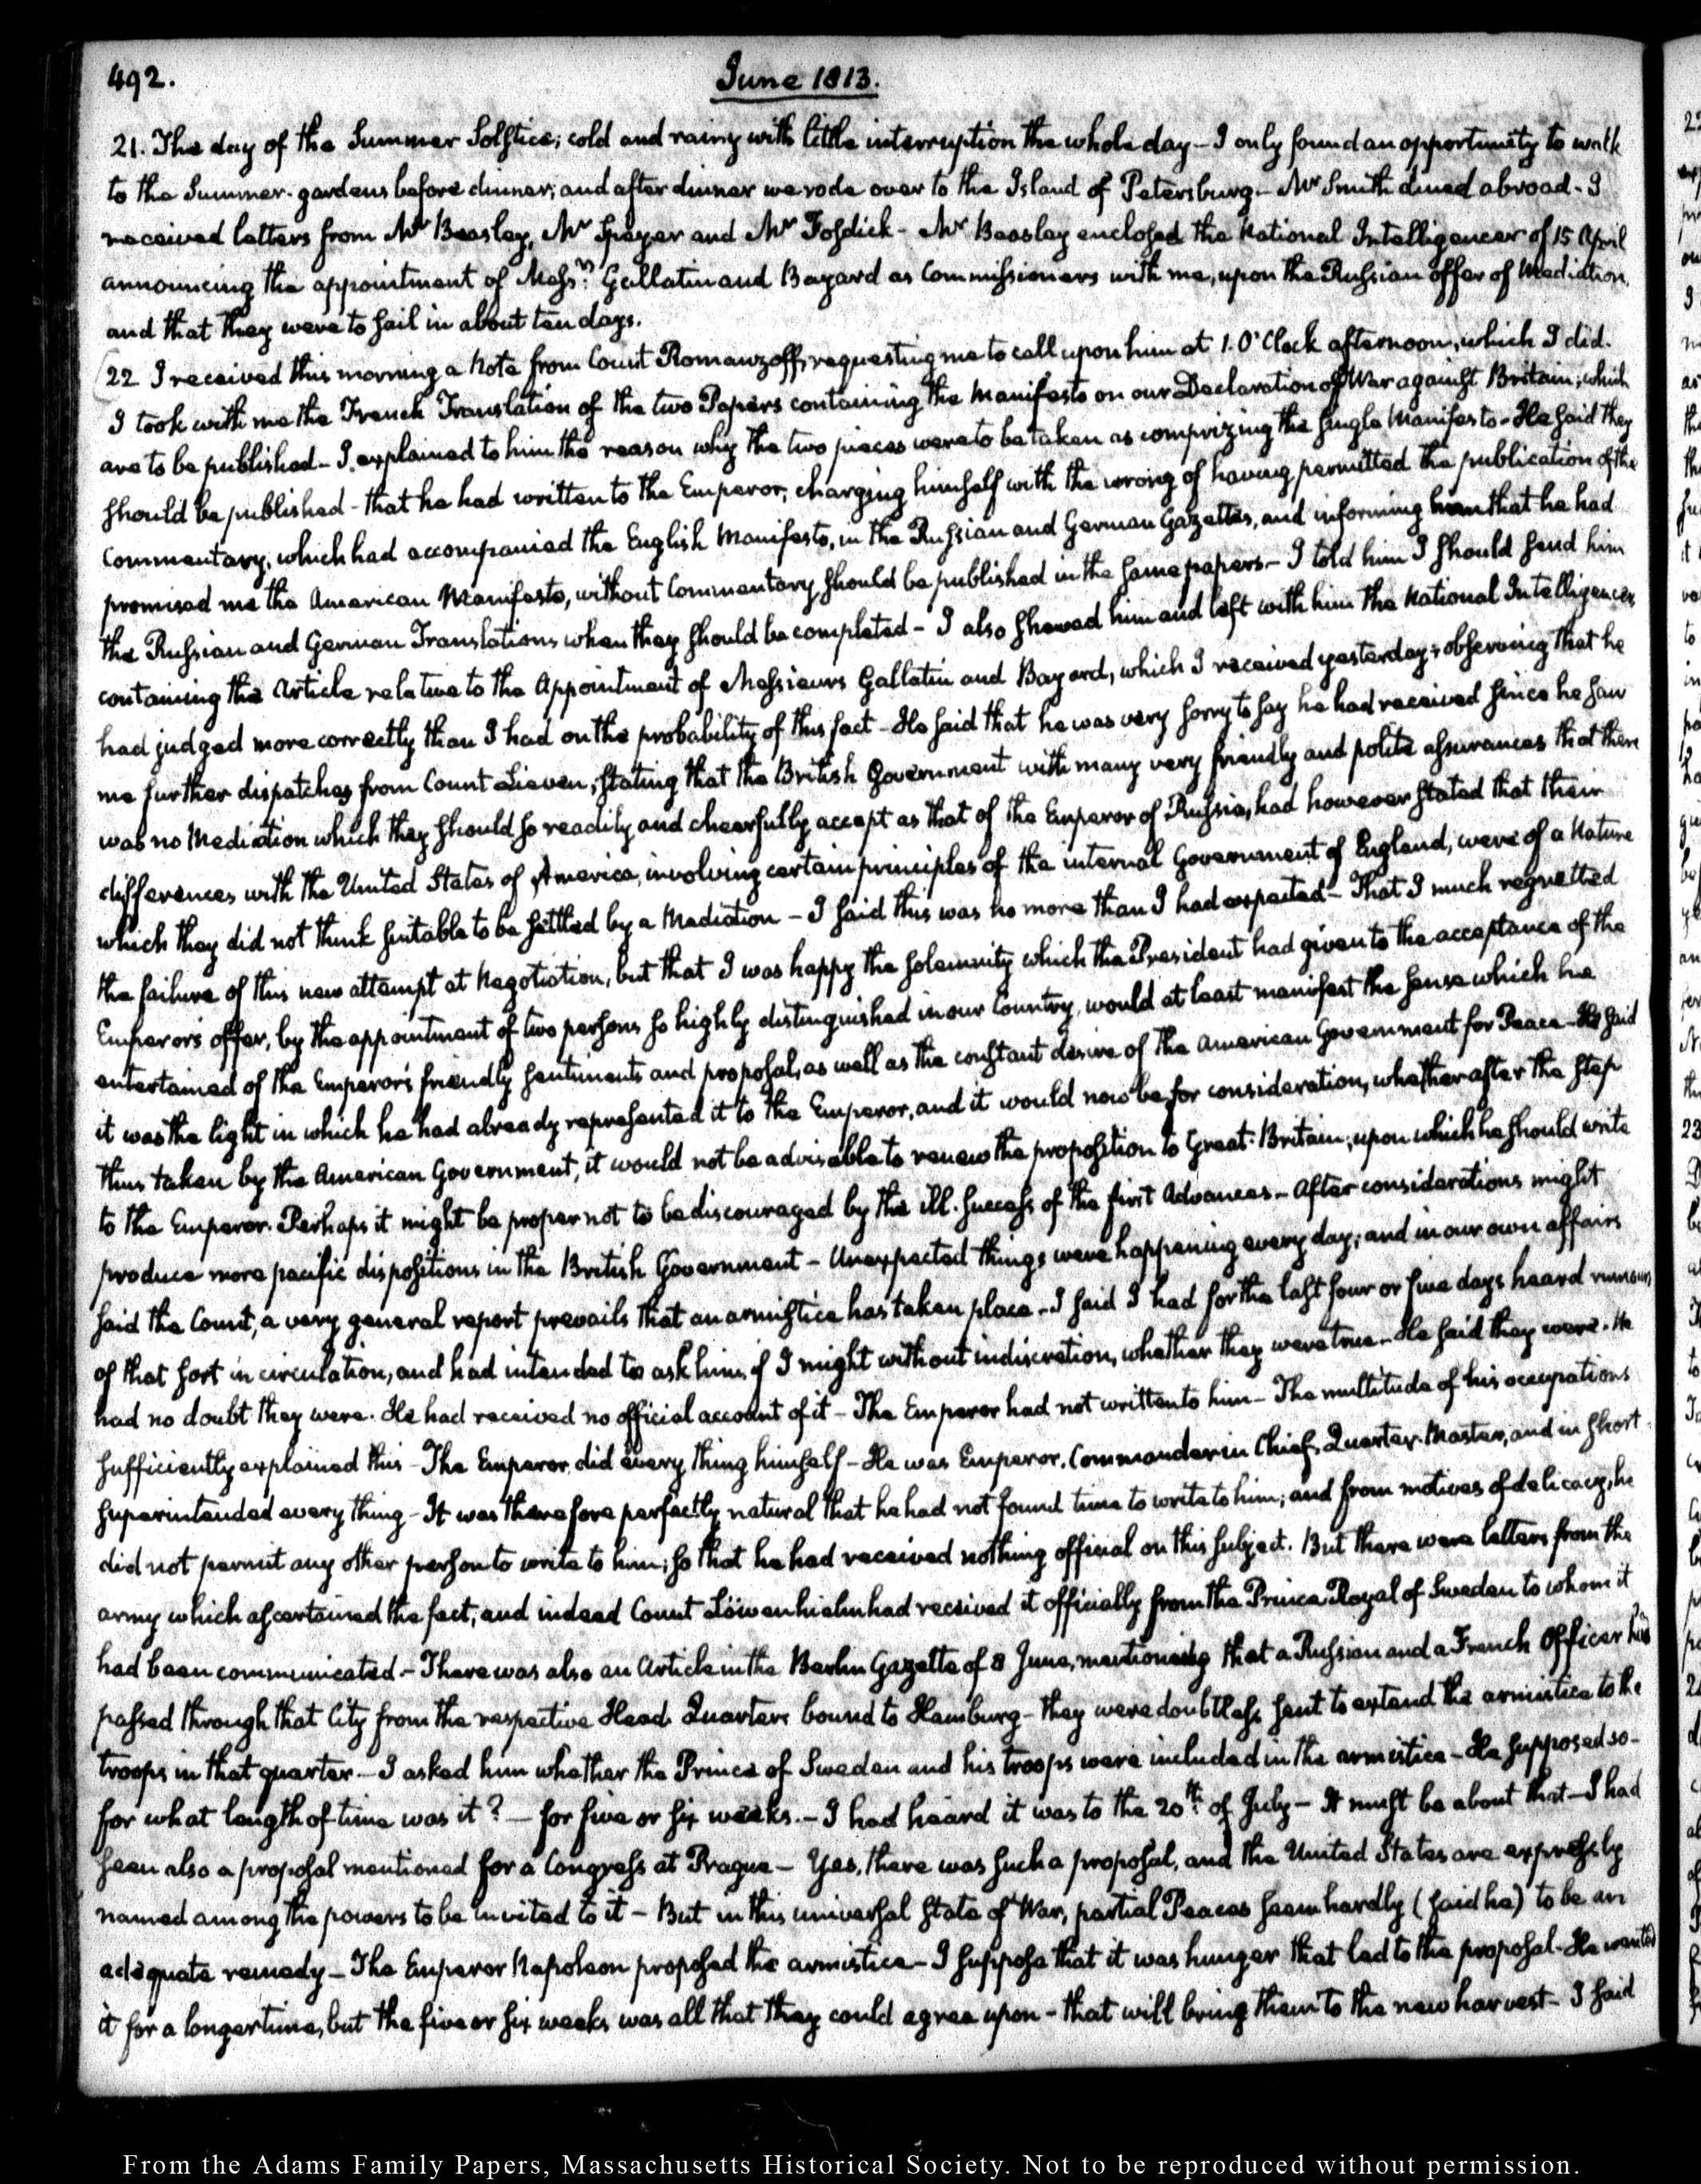 492.
June 1813.
21. The day of the Summer Solstice; cold and rainy with little interruption the whole day - I only found an opportunity to walk
to the Summer-gardens before dinner; and after dinner we rode over to the Island of Petersburg - Mr Smith dined abroad - I
received letters from Mr Beasley, Mr Speyer and Mr Fosdick - Mr Beasley enclosed the National Intelligencer of 15 April
announcing the appointment of Messrs Gallatin and Bayard as Commissioners with me, upon the Russian offer of Mediation,
and that they were to sail in about ten days.
22 I received this morning a Note from Count Romanzoff, requesting me to call upon him at 1. O'Clock afternoon, which I did.
I took with me the French Translation of the two Papers containing the Manifesto on our Declaration of War against Britain; which
are to be published - I explained to him the reason why the two pieces were to be taken as comprizing the single Manifesto - He said they
should be published - that he had written to the Emperor, charging himself with the wrong of having permitted the publication of the
Commentary, which had accompanied the English Manifesto, in the Russian and German Gazettes, and informing him that he had
promised me the American Manifesto, without Commentary should be published in the same papers - I told him I should send him
the Russian and German Translations when they should be completed - I also showed him and left with him the National Intelligencer,
containing the Article relative to the Appointment of Messieurs Gallatin and Bayard, which I received yesterday; observing that he
had judged more correctly than I had on the probability of this fact - He said that he was very sorry to say he had received since he saw
me further dispatches from Count Lieven, stating that the British Government with many very friendly and polite assurances that there
was no Mediation which they should so readily and chearfully accept as that of the Emperor of Russia, had however stated that their
differences with the United States of America, involving certain principles of the internal Government of England, were of a Nature
which they did not think suitable to be settled by a Mediation - I said this was no more than I had expected - That I much regretted
the failure of this new attempt at Negotiation, but that I was happy the solemnity which the President had given to the acceptance of the
Emperor's offer, by the appointment of two persons so highly distinguished in our Country, would at least manifest the sense which he
entertained of the Emperor's friendly sentiments and proposal, as well as the constant desire of the American Government for Peace - He said
it was the light in which he had already represented it to the Emperor, and it would now be for consideration, whether after the step
thus taken by the American Government, it would not be advisable to renew the proposition to Great-Britain; upon which he should write
to the Emperor. Perhaps it might be proper not to be discouraged by the ill-success of the first Advances - After considerations might
produce more pacific dispositions in the British Government - Unexpected things were happening every day; and in our own affairs
said the Count, a very general report prevails that an armistice has taken place - I said I had for the last four or five days heard rumours
of that sort in circulation, and had intended to ask him, if I might without indiscretion, whether they were true - He said they were. He
had no doubt they were. He had received no official account of it - The Emperor had not written to him - The multitude of his occupations
sufficiently explained this - The Emperor did every thing himself - He was Emperor, Commander in Chief, Quarter-Master, and in short
superintended every thing - It was therefore perfectly natural that he had not found time to write to him; and from motives of delicacy, he
did not permit any other person to write to him; so that he had received nothing official on this subject. But there were letters from the
army which ascertained the fact; and indeed Count Löwenhielm had received it officially from the Prince Royal of Sweden to whom it
had been communicated - There was also an Article in the Berlin Gazette of 8 June, mentioning that a Russian and a French Officer had
passed through that City from the respective Head-Quarters bound to Hamburg - they were doubtless sent to extend the armistice to the
troops in that quarter - I asked him whether the Prince of Sweden and his troops were included in the armistice - He supposed so -
for what length of time was it? - for five or six weeks. - I had heard it was to the 20th of July - It must be about that - I had
seen also a proposal mentioned for a Congress at Prague - Yes, there was such a proposal, and the United States are expressly
named among the powers to be invited to it - But in this universal state of War, partial Peaces seem hardly (said he) to be an
adequate remedy - The Emperor Napoleon proposed the armistice - I suppose that it was hunger that led to the proposal - He wanted
it for a longer time, but the five or six weeks was all that they could agree upon - that will bring them to the new harvest - I said
From the Adams Family Papers, Massachusetts Historical Society. Not to be reproduced without permission.